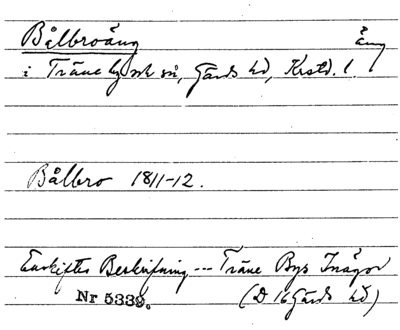 Bålbroäng äng
i Träne by och sn, Gärds hd, Krstd. l.
Bålbro 1811-12.
Enskiftes Beskrifning --- Träne Bys Inägor
Nr 5339. (D 16 Gärds hd)